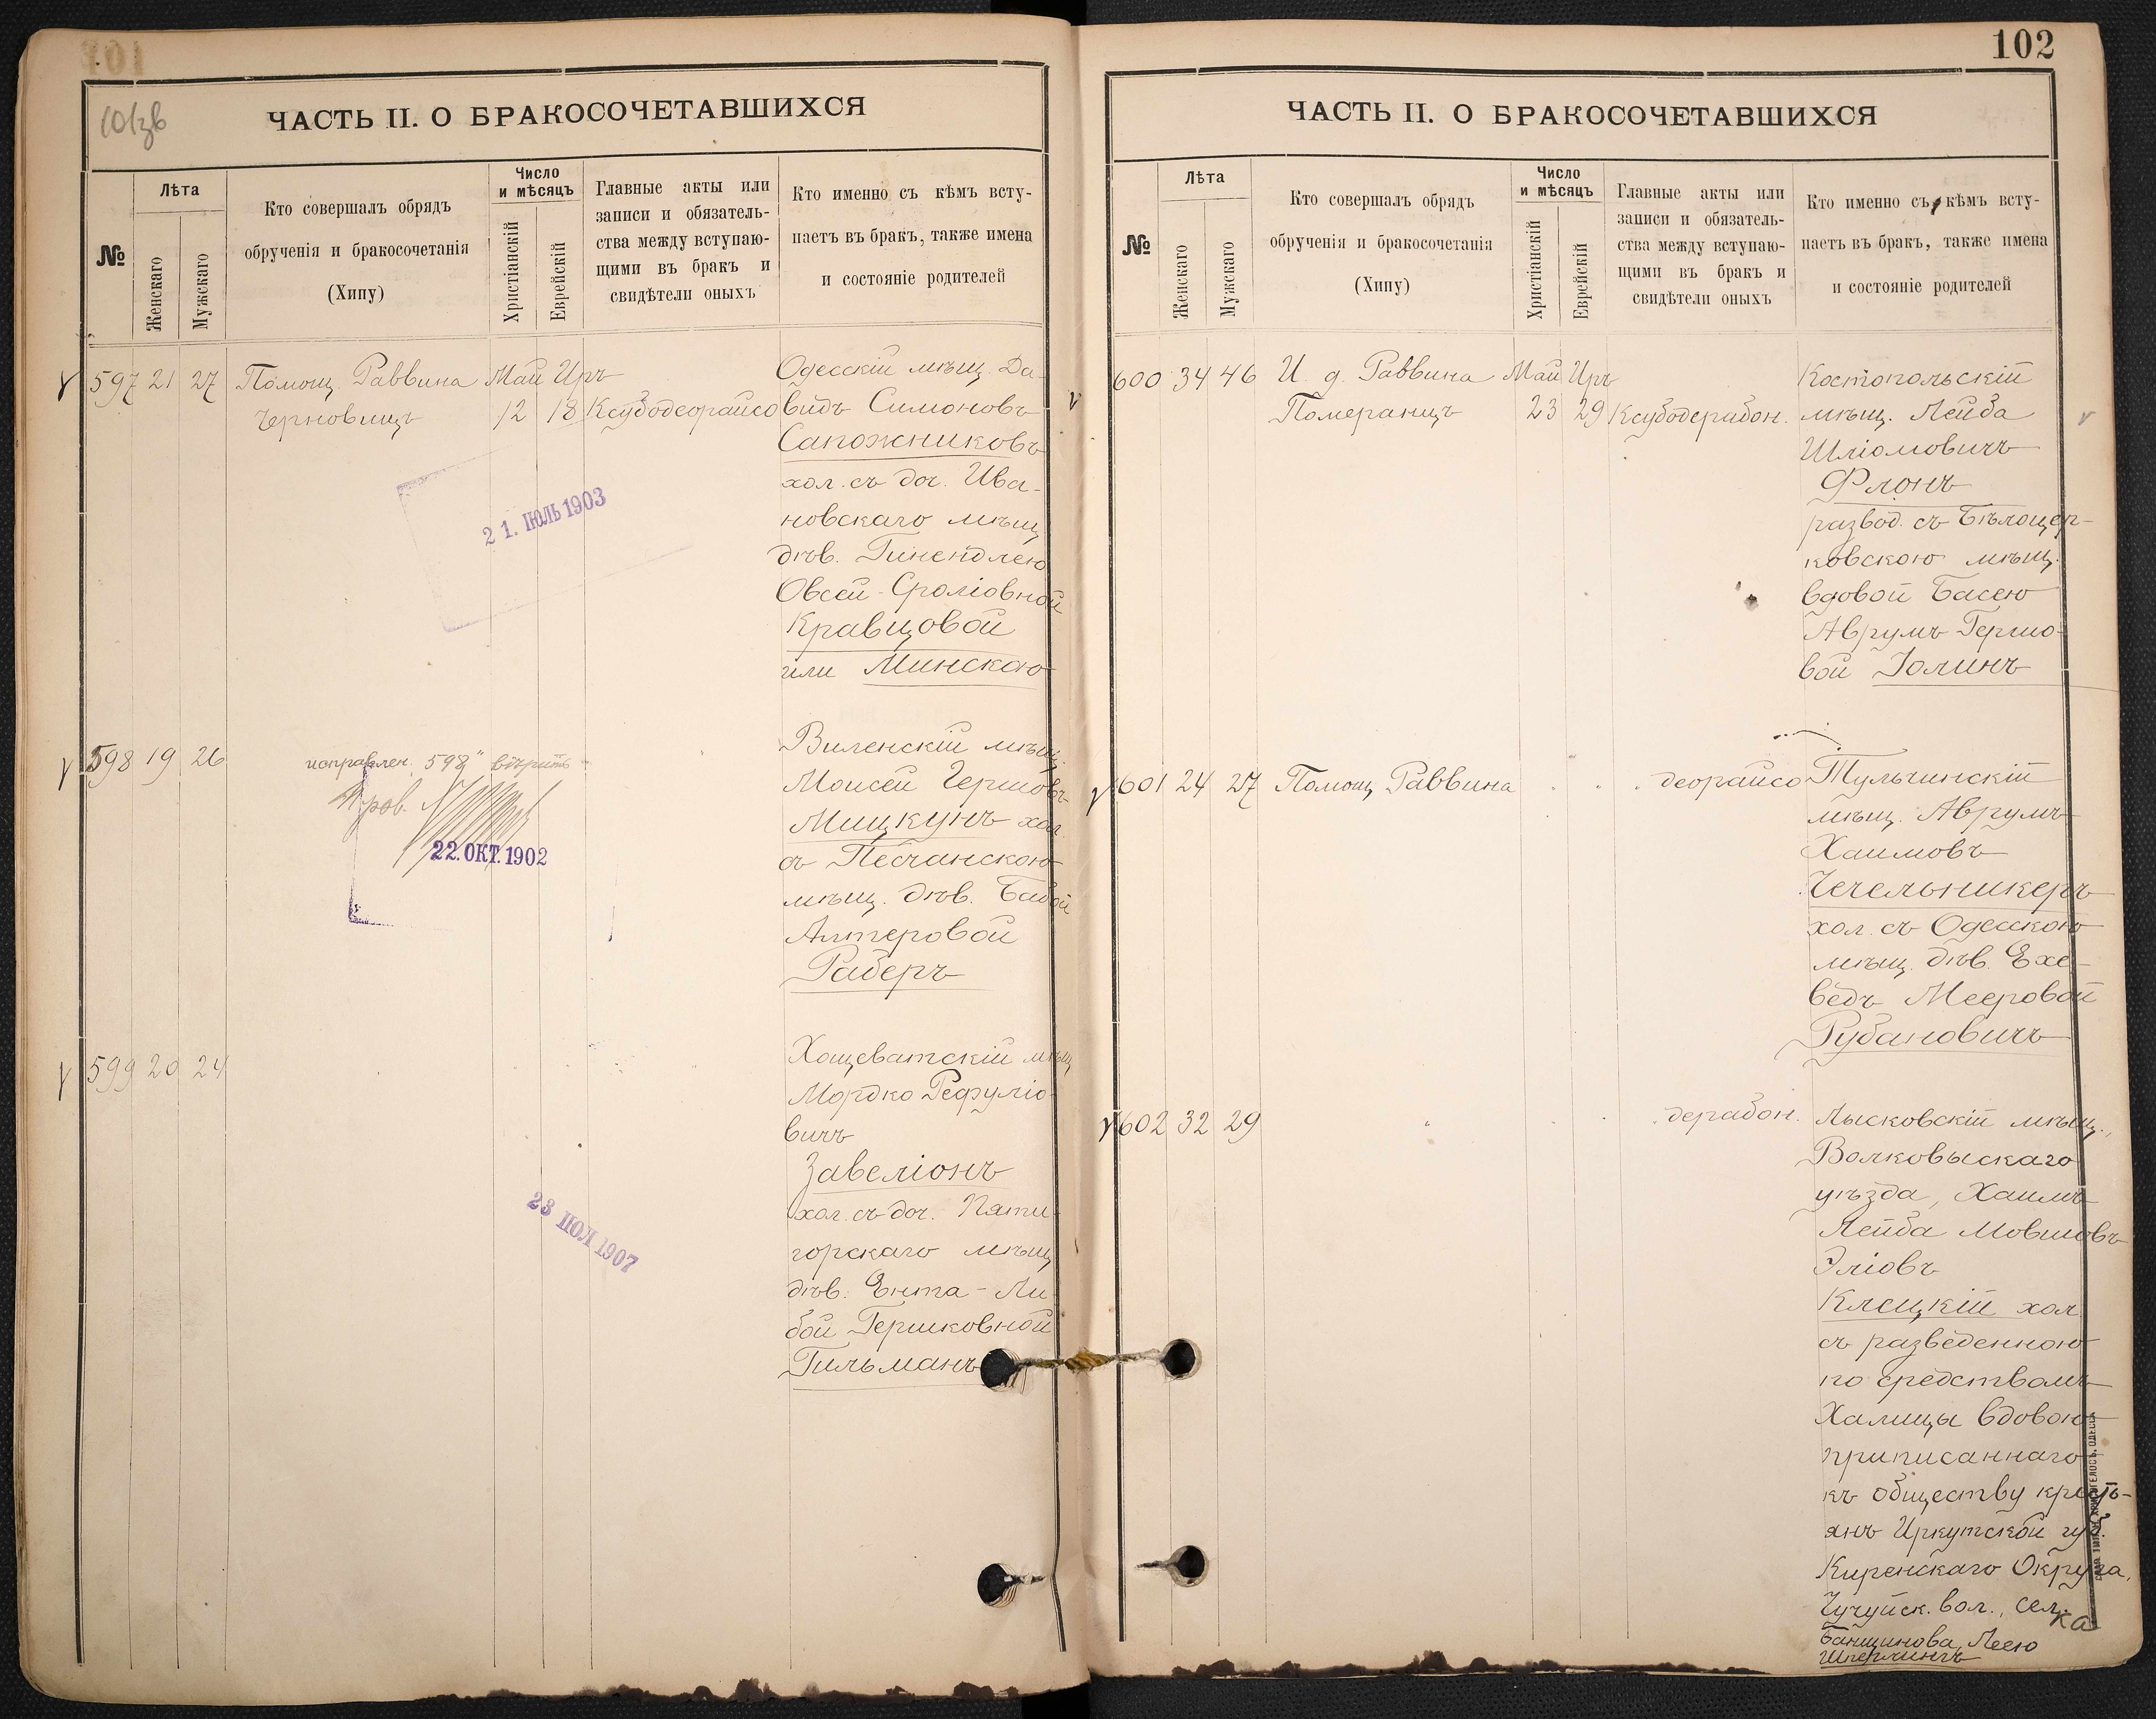 101
10/зв
ЧАСТЬ II. О БРАКОСОЧЕТАВШИХСЯ
№
Лѣта
Женскаго
Мужскаго
Кто совершалъ обрядъ
обрученія и бракосочетанія
(Хипу)
Число
и мѣсяцъ
Христіанскій
Еврейскій
Главные акты или
записи и обязатель-
ства между вступаю-
щими въ бракъ и
свидѣтели оныхъ
Кто именно съ кѣмъ всту-
паетъ въ бракъ, также имена
и состояніе родителей
597 21 27 Помощ. Раввина Май Иръ
Черновицъ 12 18 Ксубодеорайсо
Одесскій мѣщ. Да-
видъ Симоновъ
Сапожниковъ
хол. съ доч. Ива-
новскаго мѣщ.
дѣв. Гинендлею
Овсей-Сроліовной
Кравцовой
или Минскою
21. ІЮЛЬ 1903
598 19 26
исправлен. 598 " вѣрить
Пров.
22. ОКТ. 1902
Виленскій мѣщ.
Моисей Гершовъ
Мицкунъ хол.
съ Песчанскою
мѣщ. дѣв. Бабой
Алтеровой
Раберъ
599 20 24
Хощеватскій мѣщ
Мордко Рефуліо-
вичъ
Завеліонъ
хол. съ доч. Пяти-
горскаго мѣщ
дѣв. Ента-Ли-
бой Гершковной
Гильманъ
23 ІЮЛ 1907
102
ЧАСТЬ II. О БРАКОСОЧЕТАВШИХСЯ
№
Лѣта
Женскаго
Мужскаго
Кто совершалъ обрядъ
обрученія и бракосочетанія
(Хипу)
Число
и мѣсяцъ
Христіанскій
Еврейскій
Главные акты или
записи и обязатель-
ства между вступаю-
щими въ бракъ и
свидѣтели оныхъ
Кто именно съ кѣмъ всту-
паетъ въ бракъ, также имена
и состояніе родителей
600 34 46 И. д. Раввина Май Иръ
Померанцъ 23 29 Ксубодерабон.
Костопольскій
мѣщ. Лейба
Шліомовичъ
Флонъ
развод. съ Бѣлоцер-
ковскою мѣщ.
вдовой Басею
Аврумъ Гершо-
вой Іолинъ
601 24 27 Помощ Раввина " " " деорайсо
Тульчинскій
мѣщ. Аврумъ
Хаимовъ
Чечельникеръ
хол. съ Одесскою
мѣщ. дѣв. Ехе-
ведъ Мееровой
Рубановичъ
602 32 29 " " дерабон.
Лысковскій мѣщ.,
Волковыскаго
уѣзда, Хаимъ
Лейба Мовшовъ
Эліовъ
Клецкій хол
съ разведенною
по средствомъ
Халицы вдовою
приписаннаго
къ обществу кресть-
янъ Иркутской губ.
Киренскаго Округа,
Чучуйск. вол., сел-
ка
Банщикова Леею
Шперлингъ